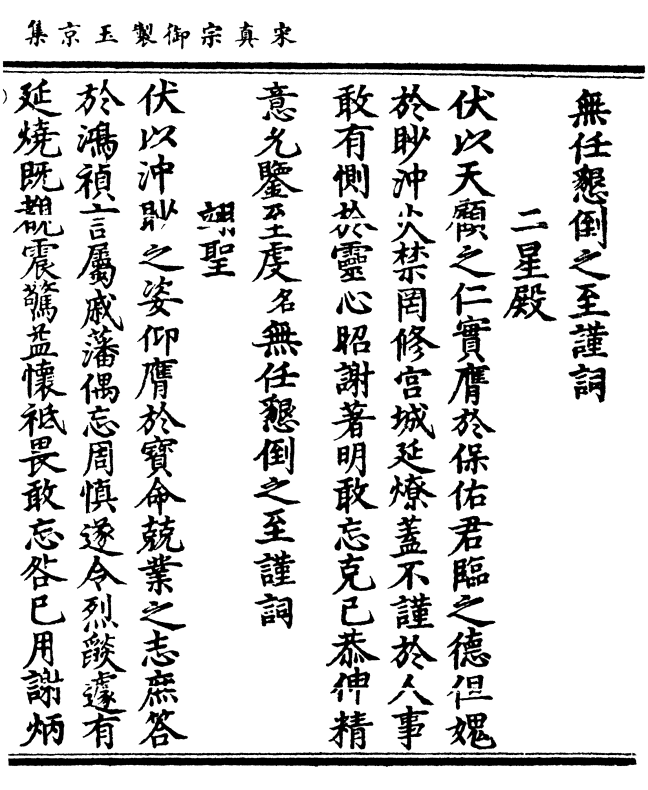 宋真宗御製玉京集
無任懇倒之至謹詞
二星殿
伏以天顧之仁實膺於保佑君臨之德但媿
於眇沖火禁罔修宮城延燎蓋不謹於人事
敢有惻於靈心昭謝著明敢忘克已恭伸精
意允鑒至虔名無任懇倒之至謹詞
翊聖
伏以沖眇之姿仰膺於寶命兢業之志庶答
於鴻禎言屬戚藩偶忘周慎遂令烈燄遽有
延燒既覩震驚益懷祗畏敢忘咎已用謝炳